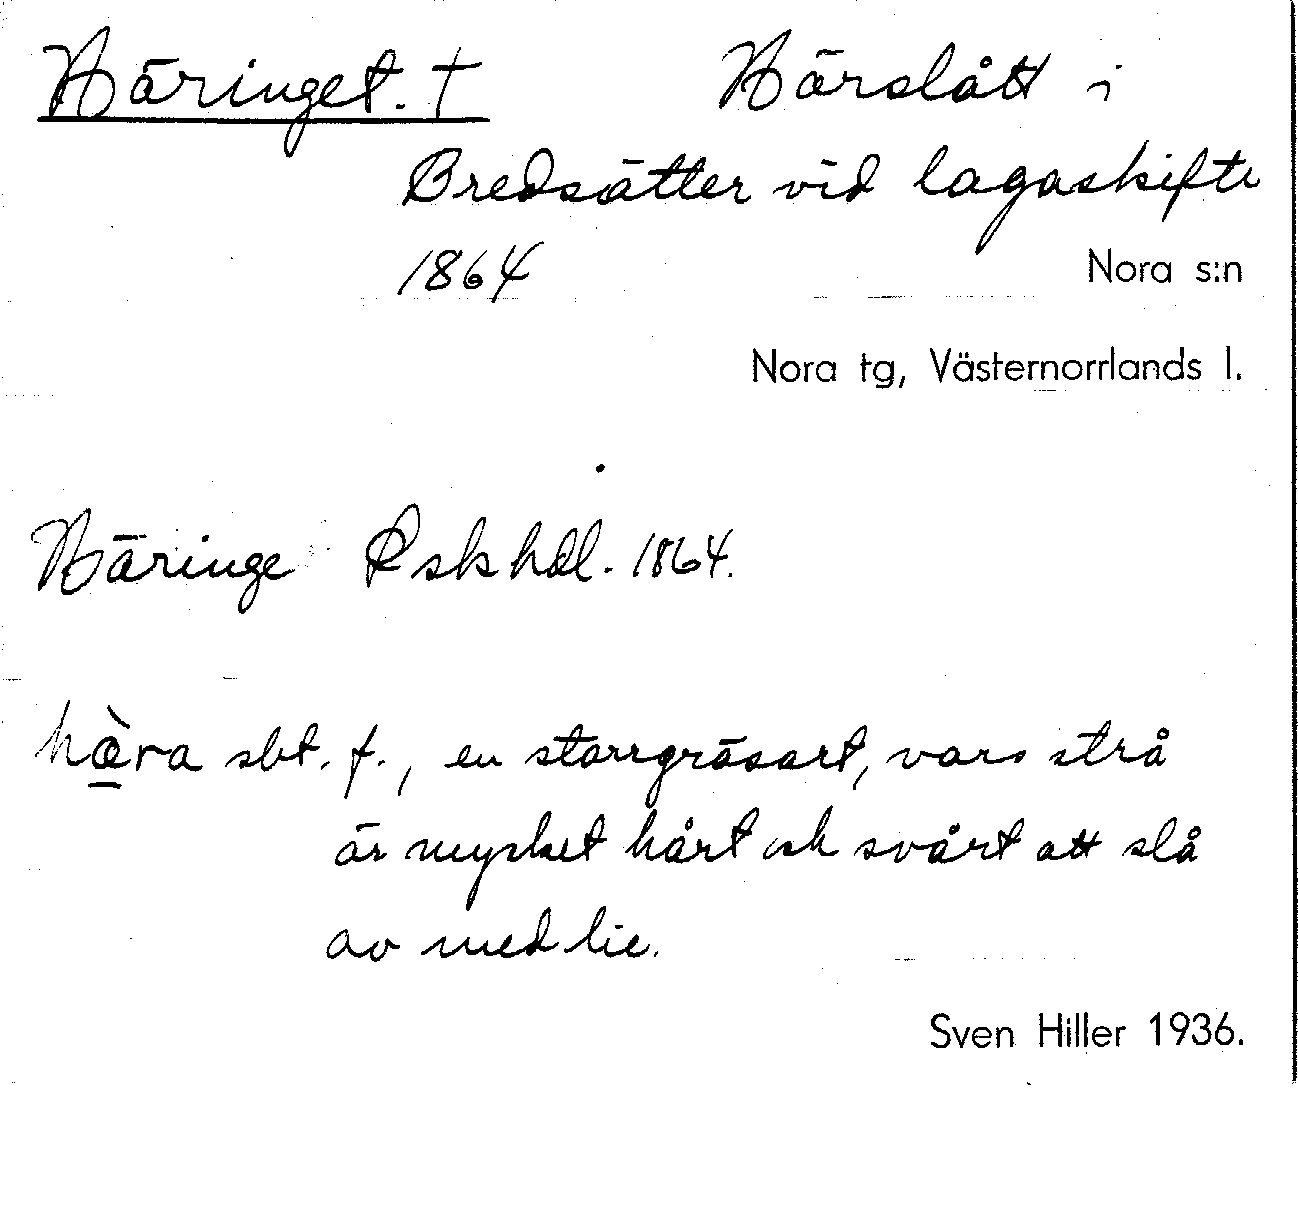 Häringet. † Hårslått i
Bredsätter vid lagaskifte
1864
Nora s:n
Nora tg, Västernorrlands l.
Häringe Lskhdl. 1864.
hæ̀ra sbt. f., en starrgräsart, vars strå
är mycket hårt och svårt att slå
av med lie.
Sven Hiller 1936.